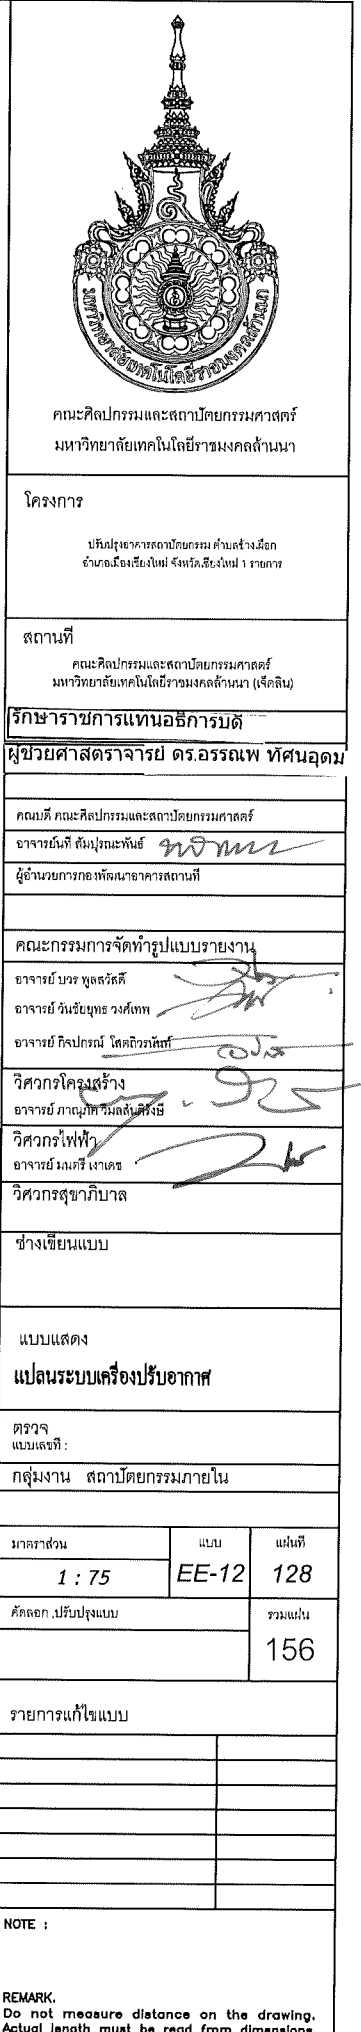 มหาวิทยาลัยเทคโนโลยีราชมงคลล้านนา
คณะศิลปกรรมและสถาปัตยกรรมศาสตร์
มหาวิทยาลัยเทคโนโลยีราชมงคลล้านนา
โครงการ
ปรับปรุงอาคารสถาปัตยกรรม ตำบลช้างเผือก
อำเภอเมืองเชียงใหม่ จังหวัดเชียงใหม่ 1 รายการ
สถานที่
คณะศิลปกรรมและสถาปัตยกรรมศาสตร์
มหาวิทยาลัยเทคโนโลยีราชมงคลล้านนา (เจ็ดลิน)
รักษาราชการแทนอธิการบดี
ผู้ช่วยศาสตราจารย์ ดร.อรรณพ ทัศนอุดม
คณบดี คณะศิลปกรรมและสถาปัตยกรรมศาสตร์
อาจารย์นที สัมปุรณะพันธ์
ผู้อำนวยการกองพัฒนาอาคารสถานที่
คณะกรรมการจัดทำรูปแบบรายงาน
อาจารย์ บวร พูลสวัสดิ์
อาจารย์ วันชัยยุทธ วงศ์เทพ
อาจารย์ กิจปกรณ์
วิศวกรโครงสร้าง
อาจารย์ ภาณุภัค
วิศวกรไฟฟ้า
อาจารย์ มนตรี เงาเดช
วิศวกรสุขาภิบาล
ช่างเขียนแบบ
แบบแสดง
แปลนระบบเครื่องปรับอากาศ
ตรวจ
แบบเลขที่ :
กลุ่มงาน สถาปัตยกรรมภายใน
มาตราส่วน แบบ แผ่นที่
1 : 75 EE-12 128
คัดลอก ,ปรับปรุงแบบ รวมแผ่น
156
รายการแก้ไขแบบ
NOTE :
REMARK.
Do not measure distance on the drawing.
Actual length must be read from dimensions.